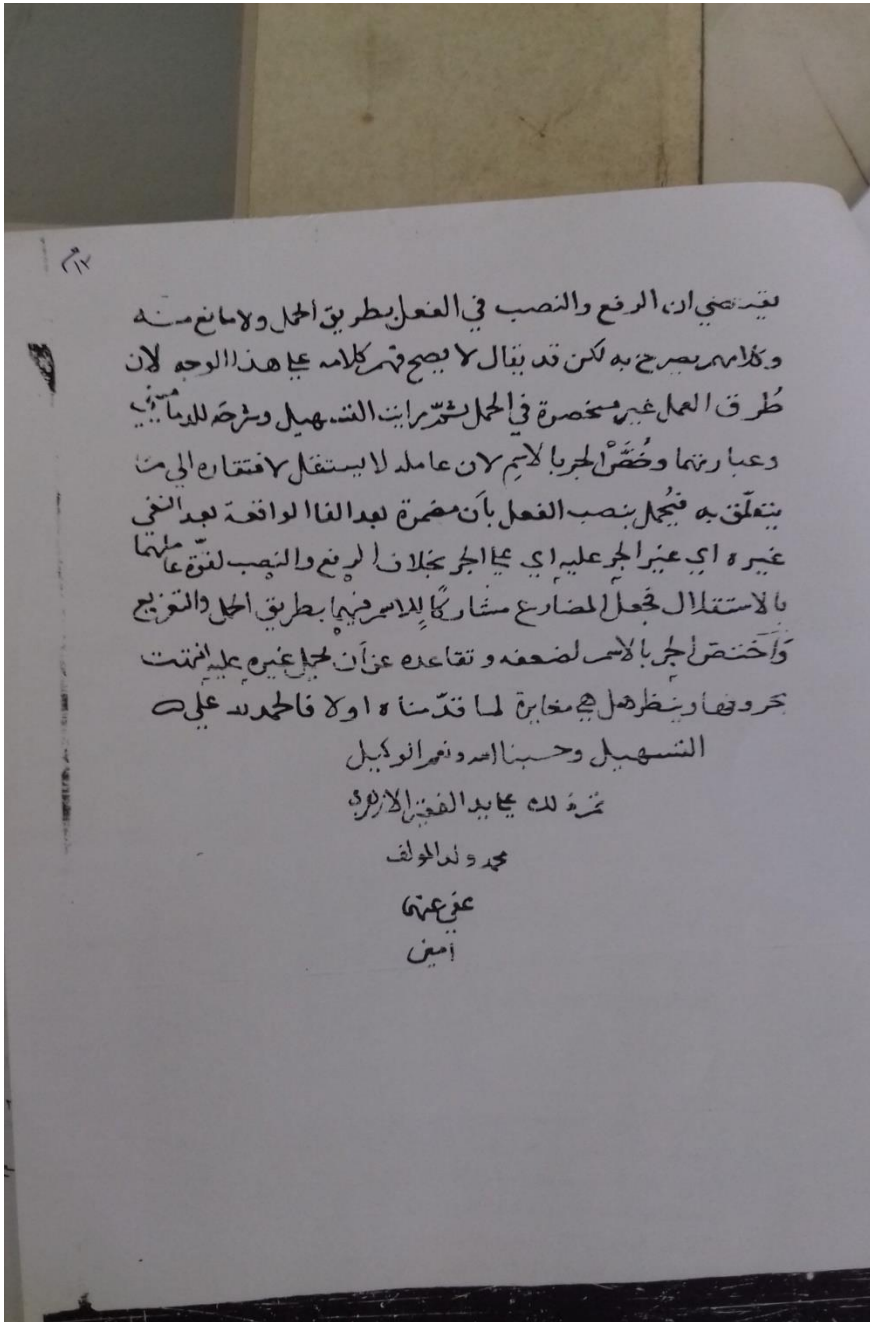 ١٣
يقتضي ان الرفع والنصب في الفعل بطريق الحمل ولا مانع منه
وكلامهم يصرح به لكن قد يقال لا يصح فهم كلامه علي هذا الوجه لان
طُرق العمل غير منحصرة في الحمل ثم رايت التسهيل وشرحه للدماميني
وعبارتهما وخُصَّ الجر بالاسم لان عامله لا يستقل لافتقاره الي ما
يتعلّق به فيُحمل بنصب الفعل بأن مضمرة بعد الفا الواقعة بعد النفي
غيره اي غير الجر عليه اي علي الجر بخلاف الرفع والنصب لقوّة عاملهما
بالاستقلال فجعل المضارع مشاركًا للاسم فيهما بطريق الحمل والتفريع
وَاختص الجر بالاسم لضعفه وتقاعده عن أن يحمل غيره عليه انتهت
بحروفها وينظر هل هي مغايرة لما قدّمناه اولا فالحمد لله علي
التسهيل وحسبنا الله ونعم الوكيل
علي يد الفقير
محمد ولد المولف
عفي عنهما
امين